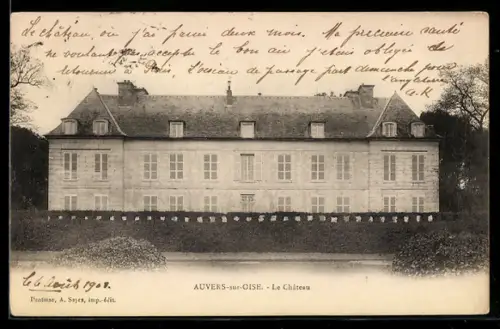 Le château, où j'ai passé deux mois. Ma précieuse santé
ne voulant pas accepter le bon air j'étais obligée de
retourner à Paris. L'oiseau de passage part dimanche pour
l'Angleterre
a. K
Le 6 Août 1908.
AUVERS-sur-OISE. - Le Château
Pontoise, A. Seyes, imp.-édit.